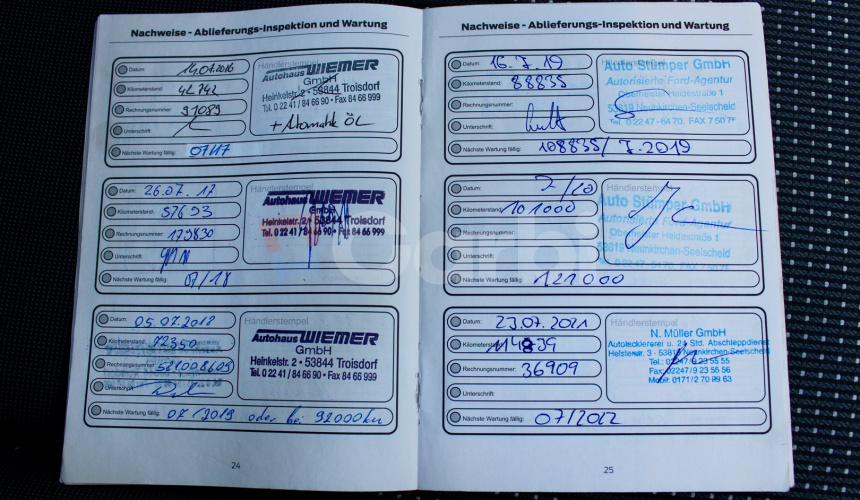 Nachweise - Ablieferungs-Inspektion und Wartung
Datum: 14.07.2016
Kilometerstand: 42742
Rechnungsnummer: 91089
Unterschrift:
Nächste Wartung fällig: 07/17
Händlerstempel
Autohaus WIEMER
GmbH
Heinkelstr. 2 • 53844 Troisdorf
Tel. 0 22 41 / 84 66 90 • Fax 84 66 999
+ Automatik ÖL
Datum: 26.07.17
Kilometerstand: 57693
Rechnungsnummer: 179830
Unterschrift:
Nächste Wartung fällig: 07/18
Händlerstempel
Autohaus WIEMER
GmbH
Heinkelstr. 2 • 53844 Troisdorf
Tel. 0 22 41 / 84 66 90 • Fax 84 66 999
Datum: 05.07.2018
Kilometerstand: 72350
Rechnungsnummer:
Unterschrift:
Nächste Wartung fällig: 07/2019 oder bei 92000km
Händlerstempel
Autohaus WIEMER
GmbH
Heinkelstr. 2 • 53844 Troisdorf
Tel. 0 22 41 / 84 66 90 • Fax 84 66 999
24
Nachweise - Ablieferungs-Inspektion und Wartung
Datum: 16.7.19
Kilometerstand: 88835
Rechnungsnummer:
Unterschrift:
Nächste Wartung fällig: 108835/7.2019
Händlerstempel
Auto Stümper GmbH
Autorisierte Ford-Agentur
Oberheister Heidestraße 1
53819 Neunkirchen-Seelscheid
Tel. 0 22 47 - 64 70, FAX 7 50 7
Datum: 7/20
Kilometerstand: 101000
Rechnungsnummer:
Unterschrift:
Nächste Wartung fällig: 121000
Händlerstempel
Auto Stümper GmbH
Autorisierte Ford-Agentur
Oberheister Heidestraße 1
53819 Neunkirchen-Seelscheid
Datum: 23.07.2021
Kilometerstand: 114839
Rechnungsnummer: 36909
Unterschrift:
Nächste Wartung fällig: 07/2022
Händlerstempel
N. Müller GmbH
Autolackiererei u. 24 Std. Abschleppdienst
Helsterstr. 3 - 53819 Neunkirchen-Seelscheid
Tel.: 02247/9 23 55 55
Fax: 02247/9 23 55 56
Mobil: 0171/2 70 99 63
25